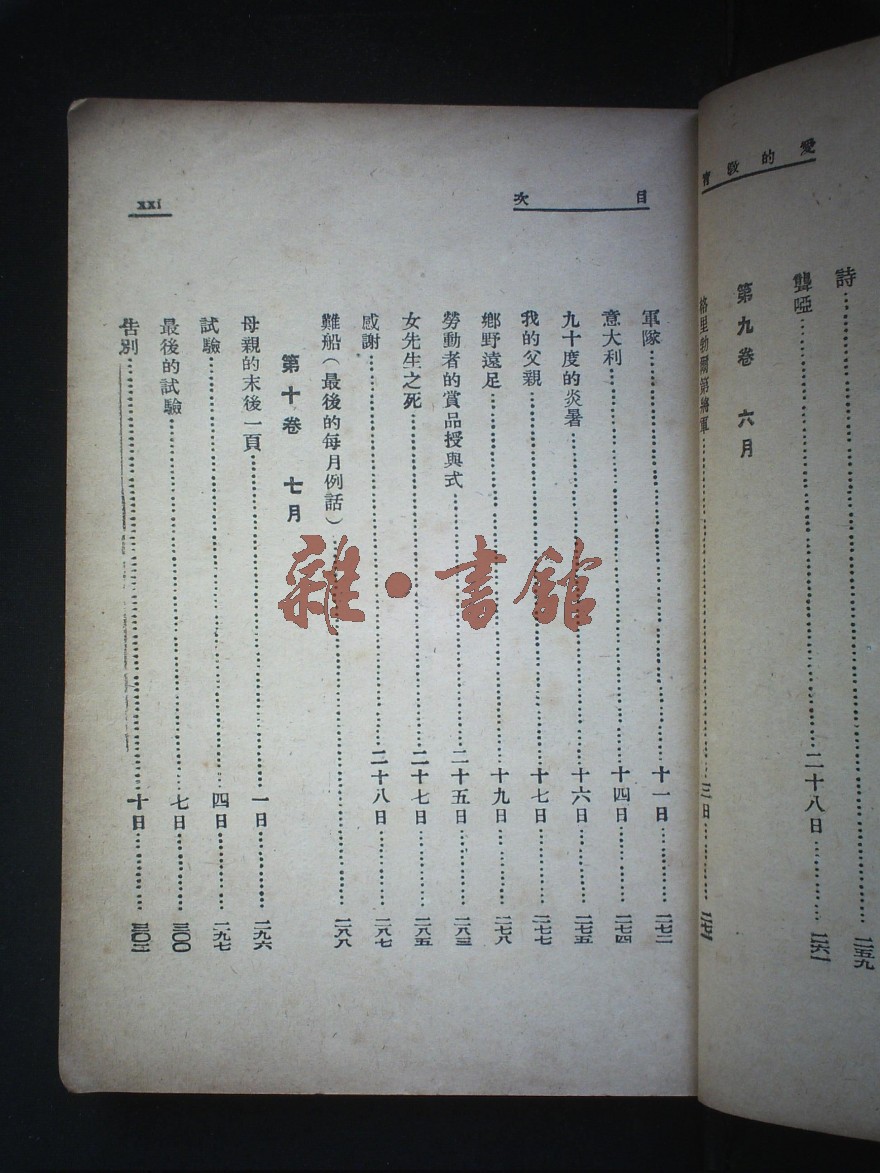 愛的教育
詩……二五九
聾啞……二十八日……二六一
第九卷 六月
格里勃爾第將軍……三日……
目次
xxi
軍隊……十一日……二七二
意大利……十四日……二七四
九十度的炎暑……十六日……二七五
我的父親……十七日……二七七
鄉野遠足……十九日……二七八
勞動者的賞品授與式……二十五日……二八三
女先生之死……二十七日……二八五
感謝……二十八日……二八七
難船（最後的每月例話）……二八八
第十卷 七月
母親的末後一頁……一日……二九六
試驗……四日……二九七
最後的試驗……七日……三〇〇
告別……十日……三〇二
雜·書館